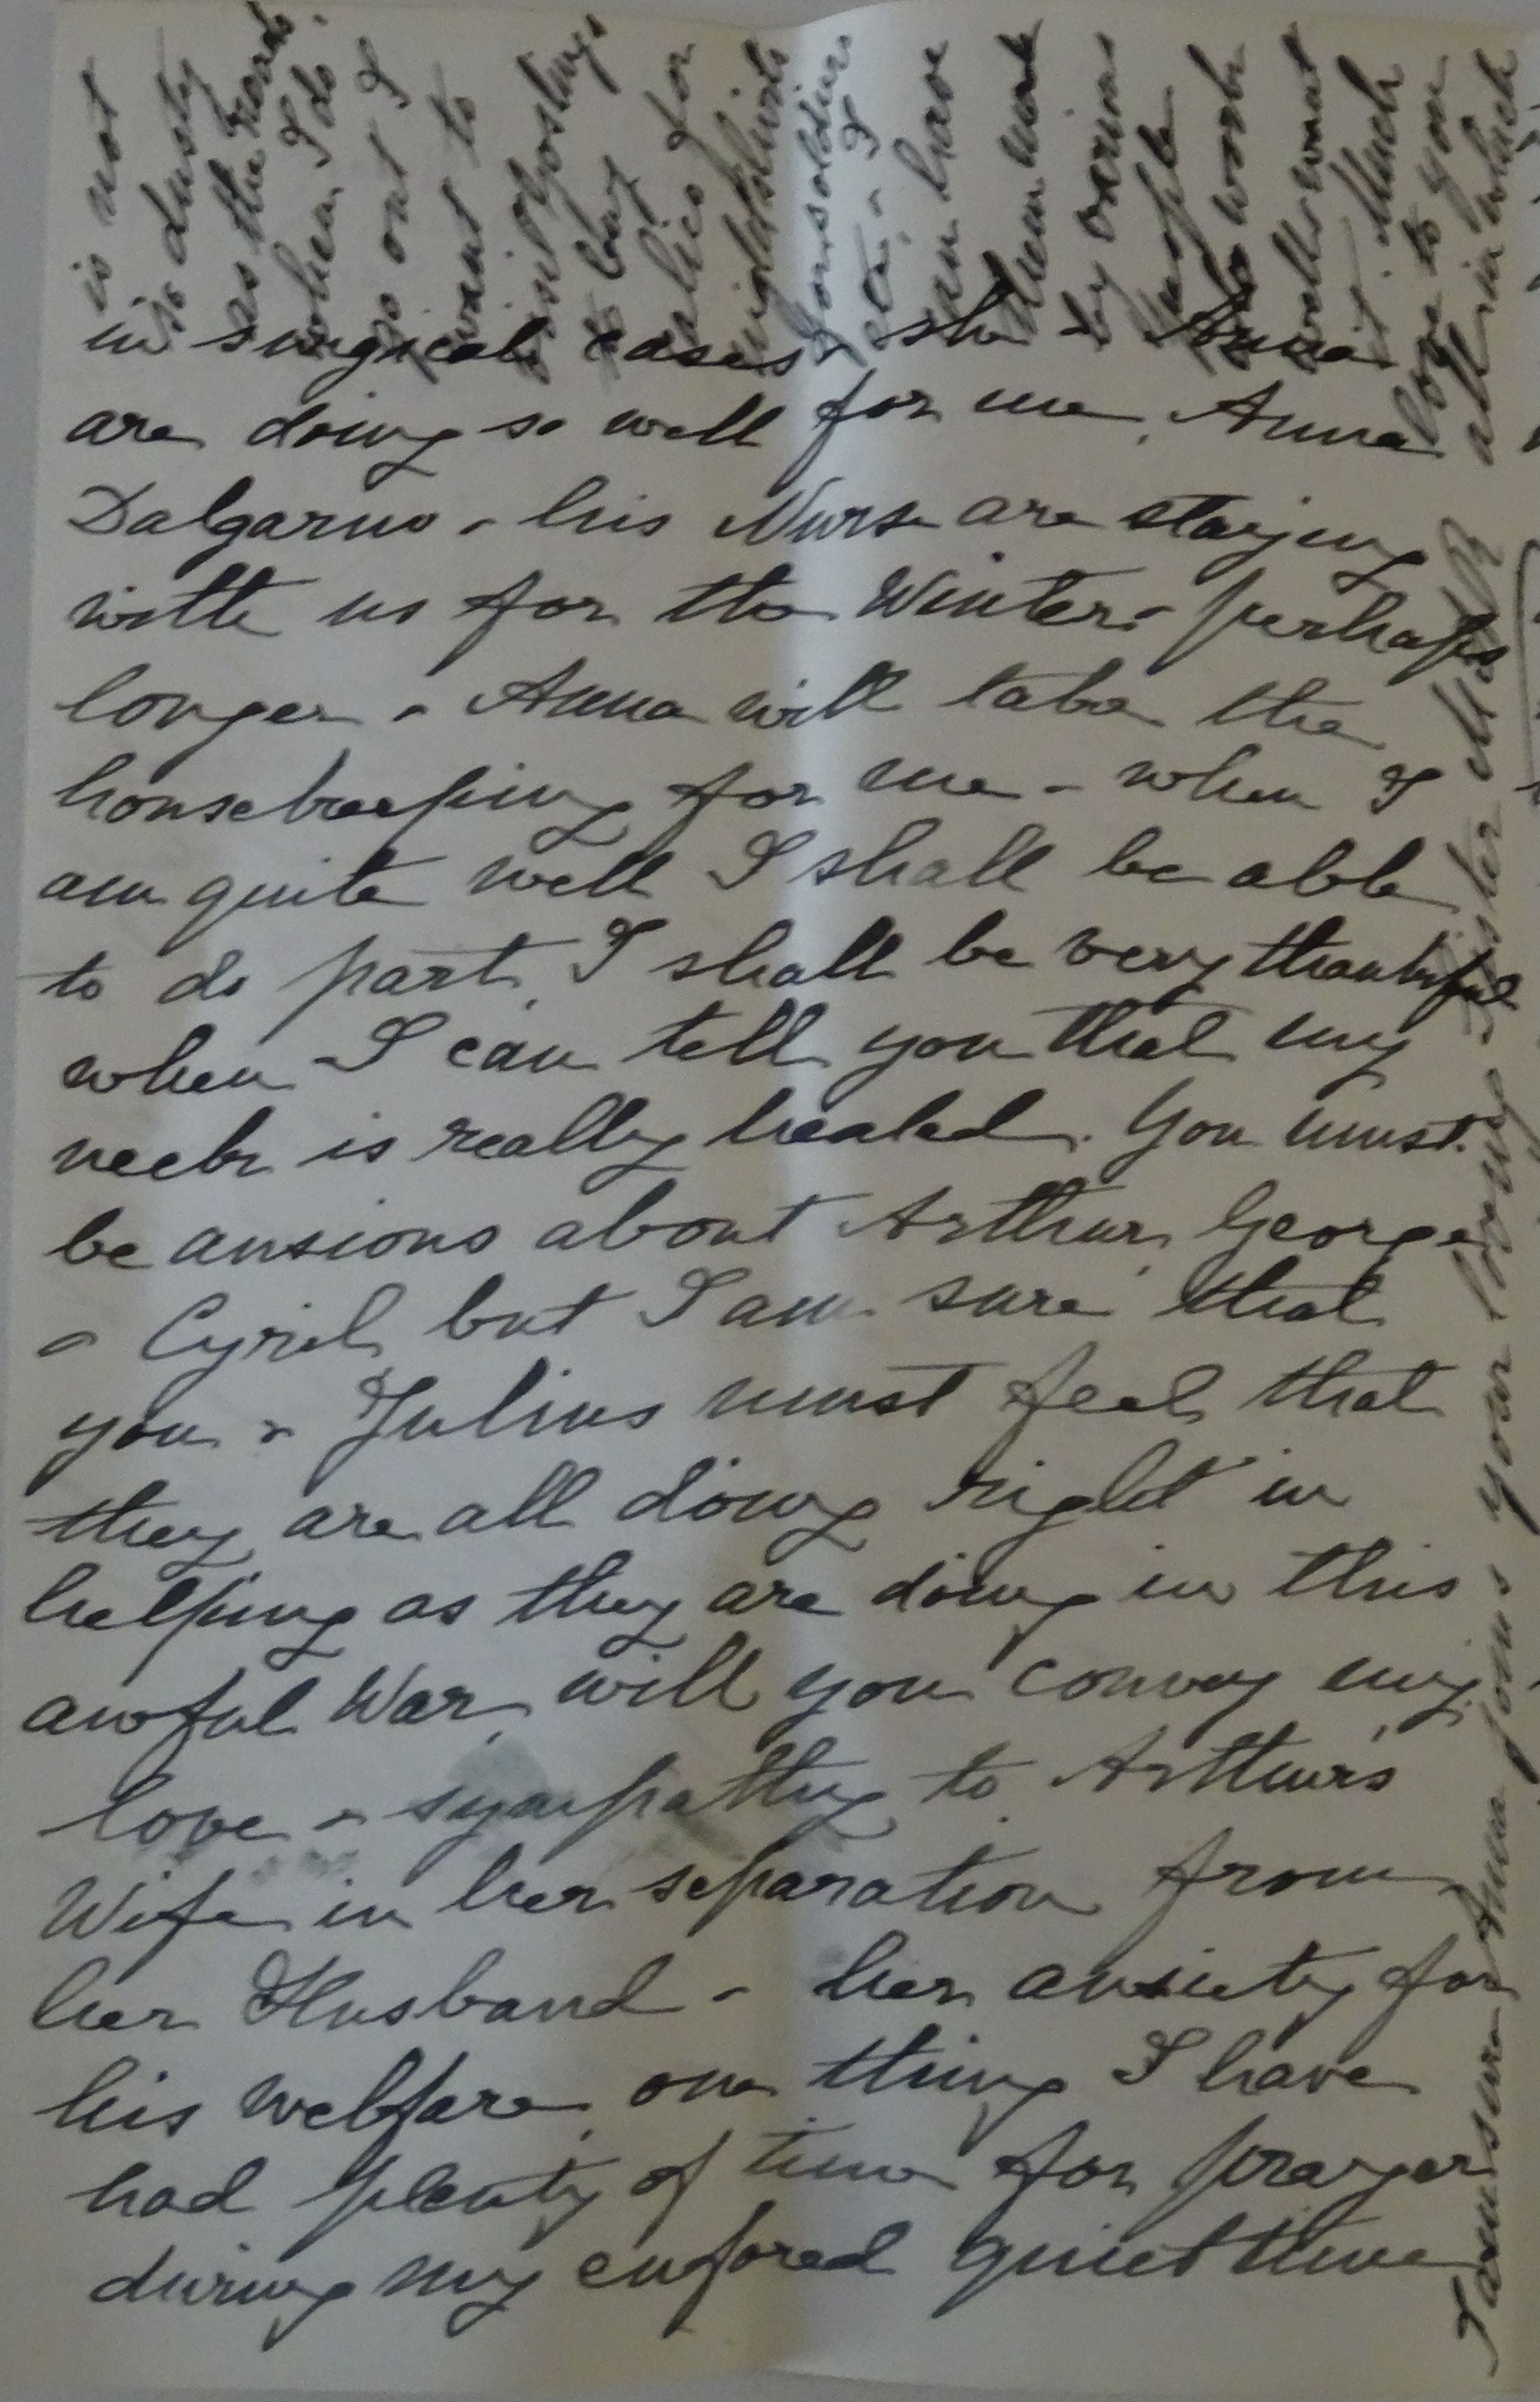 in surgical cases & she & Anna
are doing so well for me, Anna
Dalgarno & his Nurse are staying
with us for the Winter & perhaps
longer & Anna will take the
housekeeping for me & when I
am quite well I shall be able
to do part, I shall be very thankful
when I can tell you that my
neck is really healed. You must
be anxious about Arthur, George
& Cyril but I am sure that
you & Julius must feel that
they are all doing right in
helping as they are doing in this
awful War, will you convey my
love & sympathy to Arthur's
Wife in her separation from
her Husband & her anxiety for
his welfare, one thing I have
had plenty of time for prayer
during my enforced quiet time
is not
so dusty
as the roads.
when I do
go out I
want to
visit Gosling's
to buy
calico for
nightshirts
for soldiers
etc & I
can have
them made
by various
people
so work
well want
it. Much
love to you
all in which
I am sure Anna joins your loving Sister M R